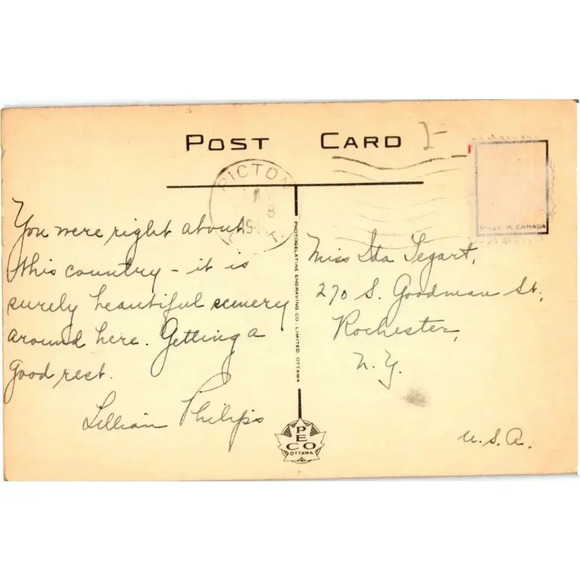 POST CARD
PICTON
8
You were right about
this country – it is
surely beautiful scenery
around here. Getting a
good rest.
Lillian Philips
PHOTOGELATINE ENGRAVING CO. LIMITED, OTTAWA
PECO
OTTAWA
MADE IN CANADA
Miss Ida Tegart,
270 S. Goodman St.,
Rochester,
N.Y.
U.S.A.